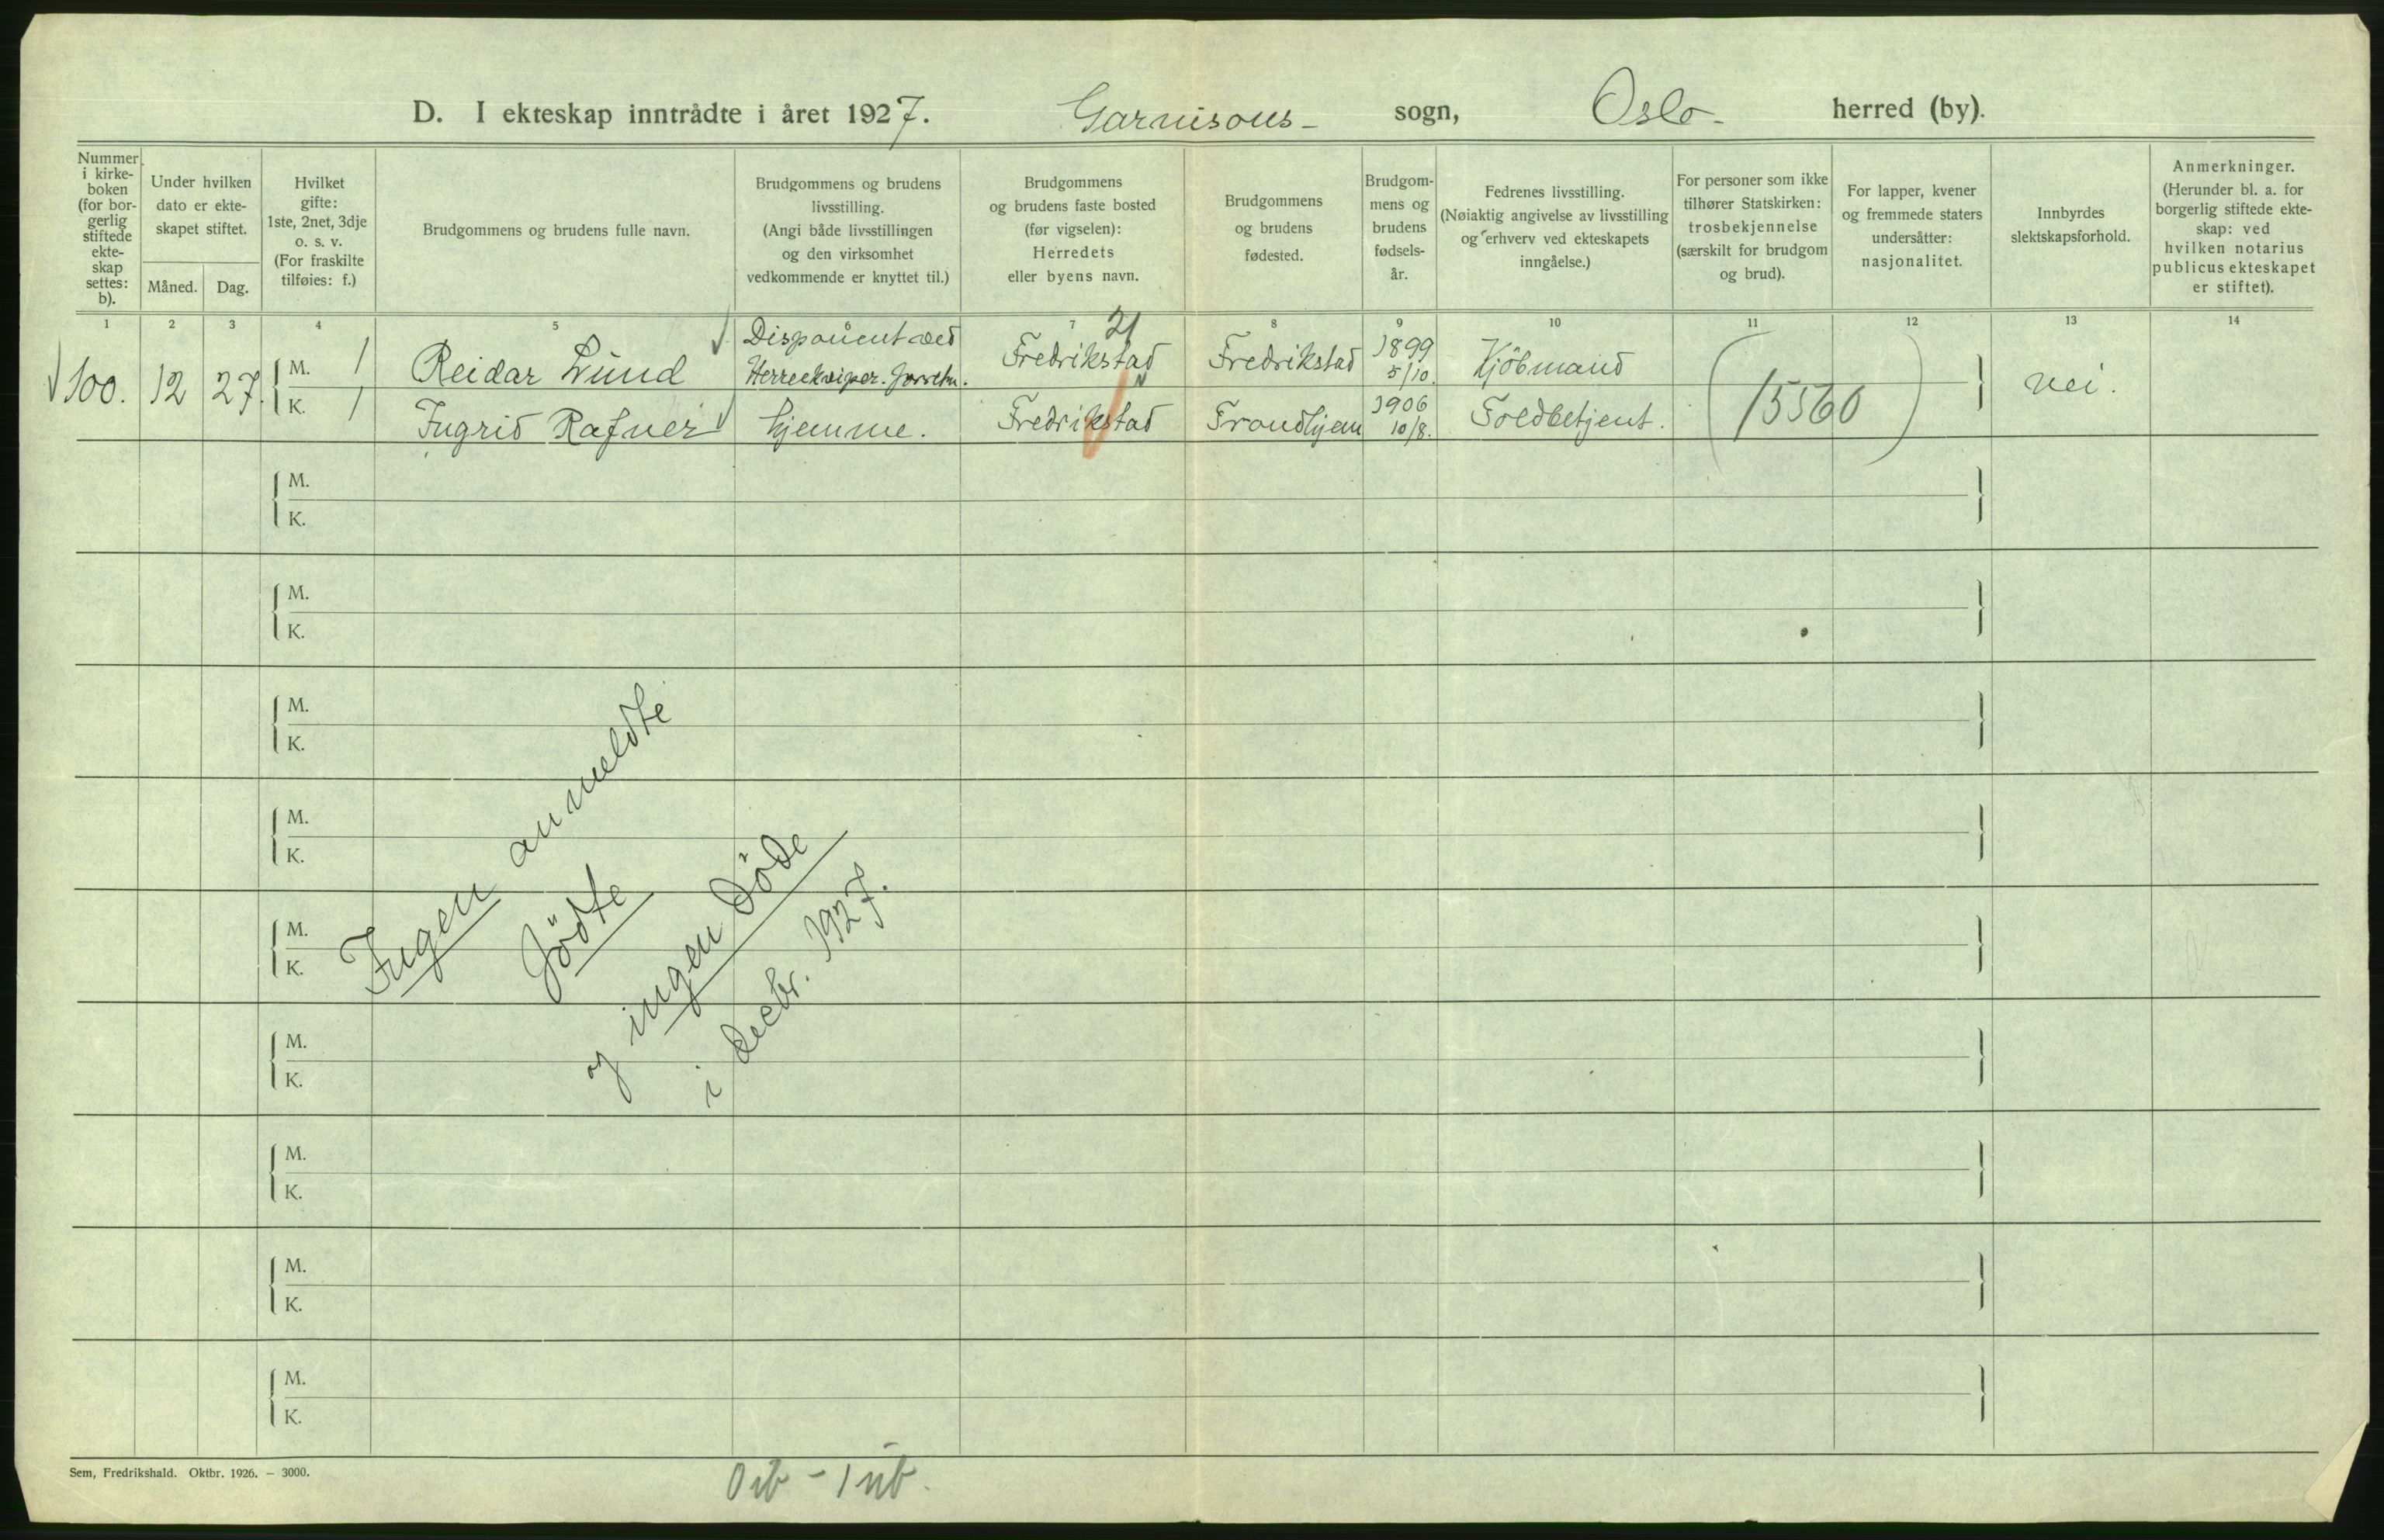 D. I ekteskap inntrådte i året 1927. Garnisons- sogn, Oslo- herred (by).
Nummer i kirke-boken (for bor-gerlig stiftede ekte-skap settes: b).
Under hvilken dato er ekte-skapet stiftet.
Måned.
Dag.
Hvilket gifte: 1ste, 2net, 3dje o. s. v. (For fraskilte tilføies: f.)
Brudgommens og brudens fulle navn.
Brudgommens og brudens livsstilling. (Angi både livsstillingen og den virksomhet vedkommende er knyttet til.)
Brudgommens og brudens faste bosted (før vigselen): Herredets eller byens navn.
Brudgommens og brudens fødested.
Brudgom-mens og brudens fødsels-år.
Fedrenes livsstilling. (Nøiaktig angivelse av livsstilling og erhverv ved ekteskapets inngåelse.)
For personer som ikke tilhører Statskirken: trosbekjennelse (særskilt for brudgom og brud).
For lapper, kvener og fremmede staters undersåtter: nasjonalitet.
Innbyrdes slektskapsforhold.
Anmerkninger. (Herunder bl. a. for borgerlig stiftede ekte-skap: ved hvilken notarius publicus ekteskapet er stiftet).
1 2 3 4 5 7 8 9 10 11 12 13 14
21
100. 12 27.
M. 1 Reidar Lund Disponent ved Herreekviper. forretn. Fredrikstad Fredrikstad 1899 5/10. Kjöbmand
K. 1 Ingrid Rafner hjemme. Fredrikstad Trondhjem 1906 10/8. Toldbetjent.
(15560)
nei.
M.
K.
M.
K.
M.
K.
M.
K.
M.
K.
M.
K.
M.
K.
M.
K.
M.
K.
Ingen anmeldte
födte
og ingen döde
i decbr. 1927.
Sem, Fredrikshald. Oktbr. 1926. – 3000.